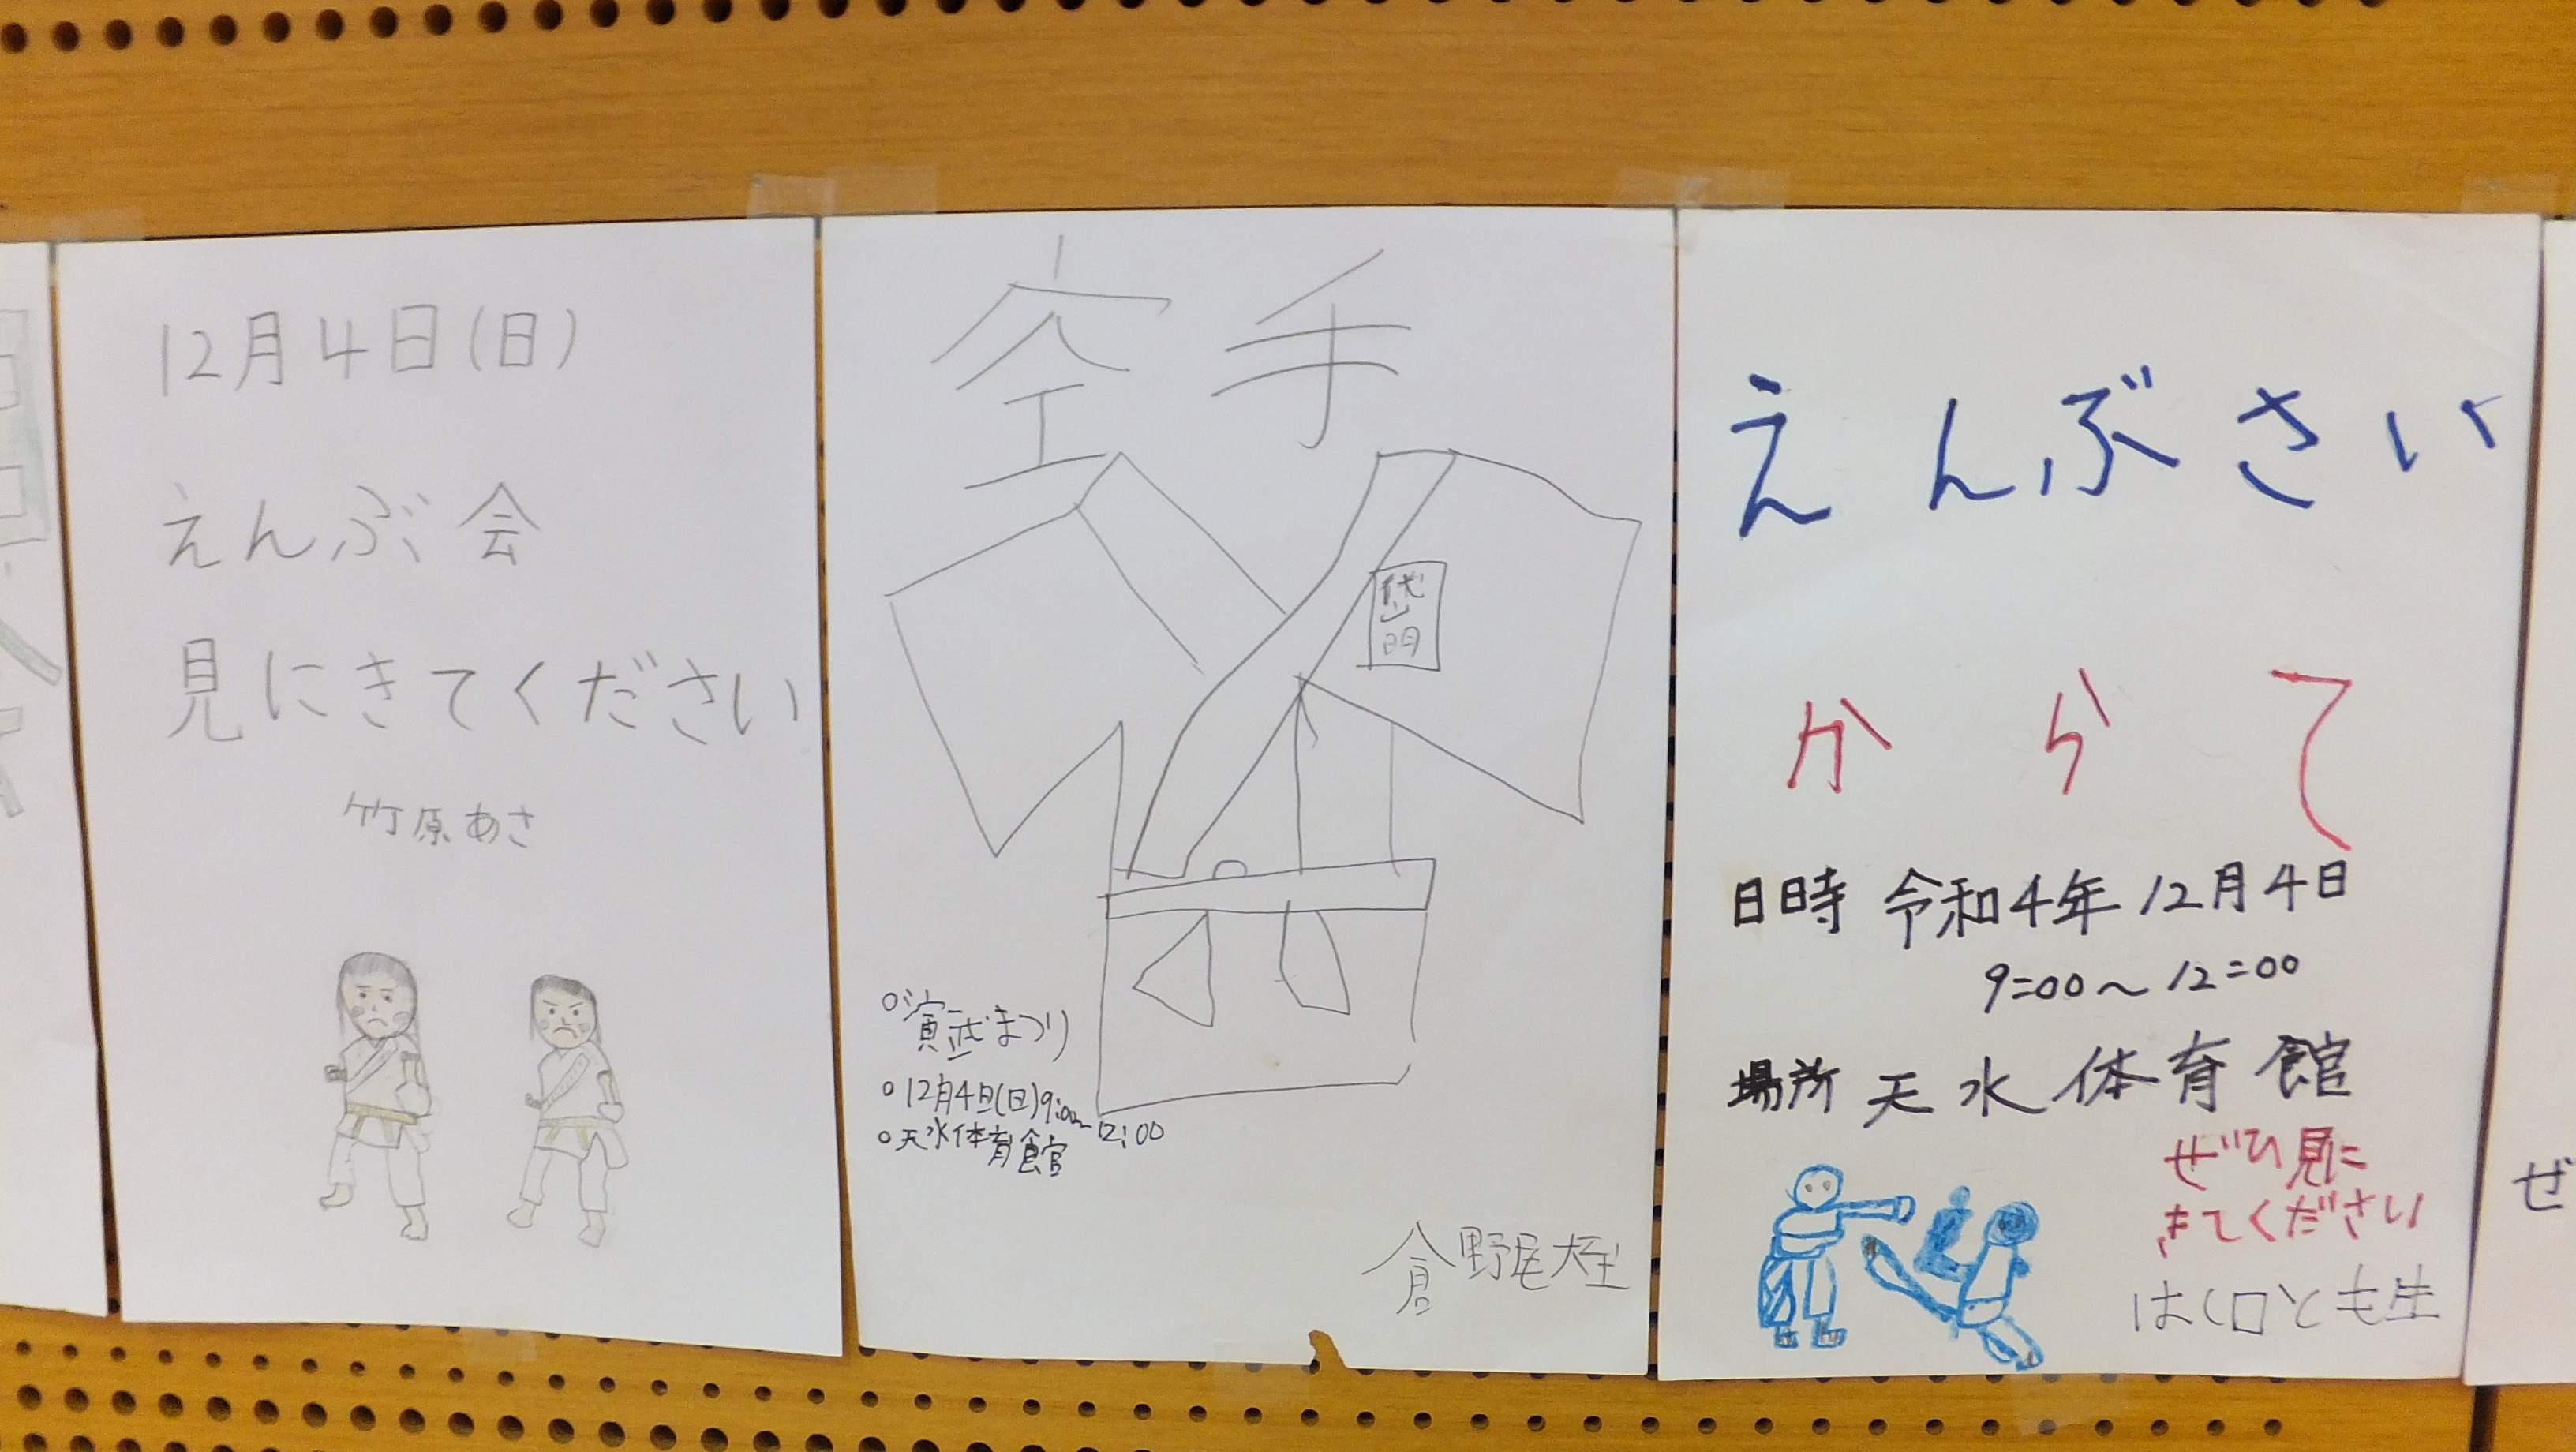 12月4日(日)
えんぶ会
見にきてください
竹原あさ
空手
○演武まつり
○12月4日(日)9:00~12:00
○天水体育館
倉野尾
えんぶさい
からて
日時 令和4年12月4日
9:00~12:00
場所 天水体育館
ぜひ見に
きてください
は口とも生
ぜ